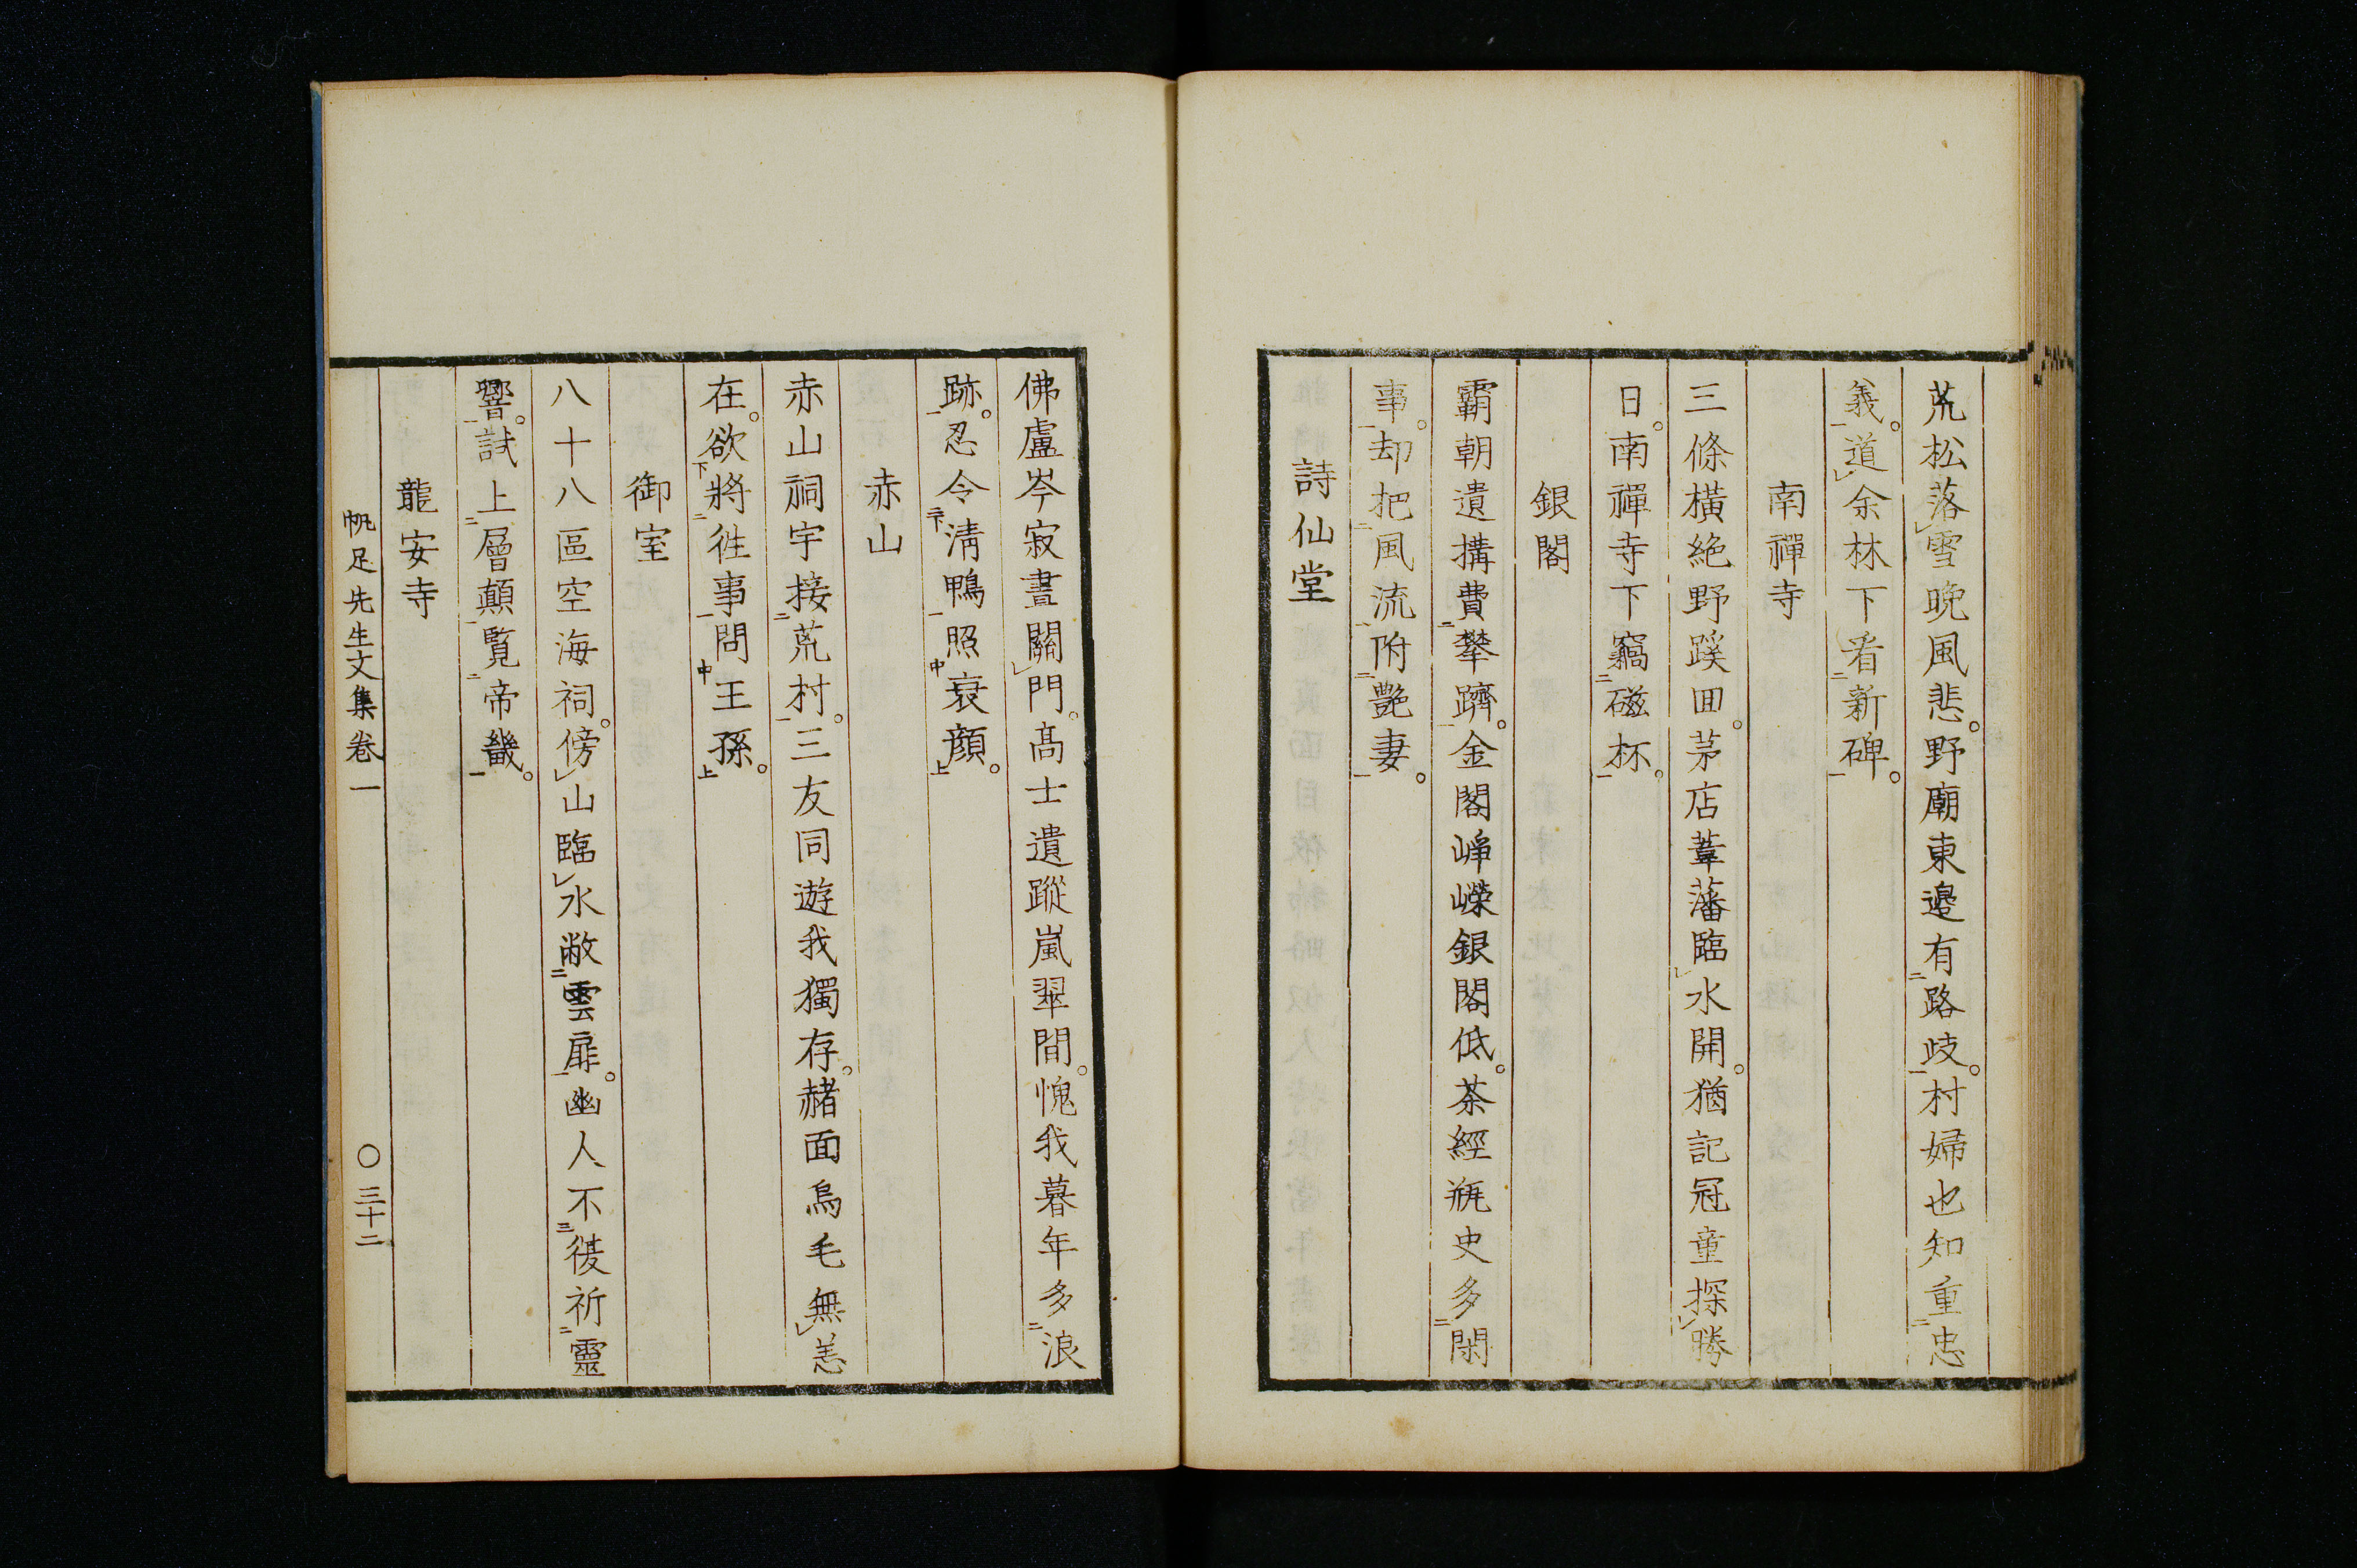 荒松落雪晩風悲。野廟東邊有路歧。村婦也知重忠
義。道余林下看新碑。
南禪寺
三條橫絶野蹊回。茅店葦藩臨水開。猶記冠童探勝
日。南禪寺下竊磁杯。
銀閣
霸朝遺搆費攀躋。金閣崢嶸銀閣低。茶經瓶史多閑
事。却把風流附艶妻。
詩仙堂
佛盧岑寂晝關門。高士遺蹤嵐翠間。愧我暮年多浪
跡。忍令淸鴨照衰顏。
赤山
赤山祠宇接荒村。三友同遊我獨存。赭面烏毛無恙
在。欲將徃事問王孫。
御室
八十八區空海祠。傍山臨水敝雲扉。幽人不復祈靈
響。試上層顛覽帝畿。
龍安寺
帆足先生文集卷一 〇三十二